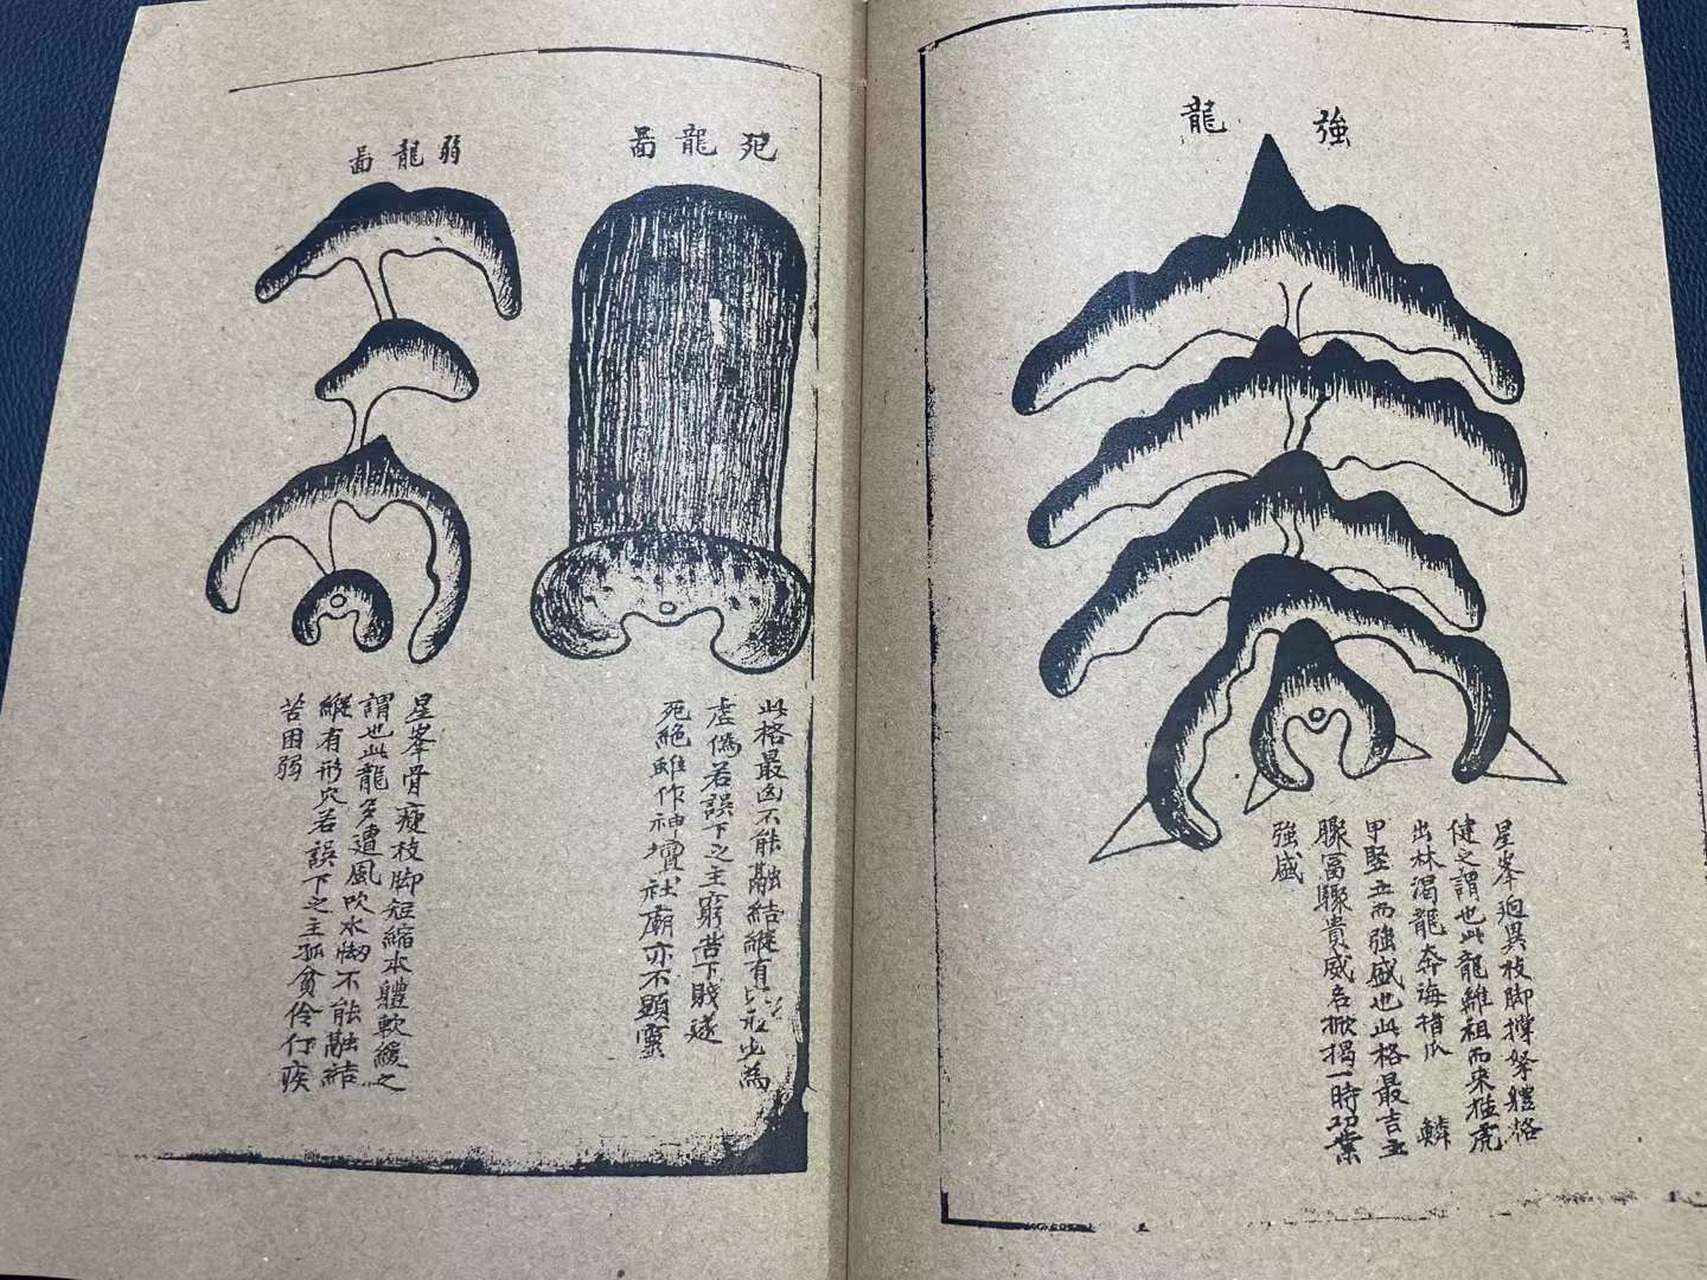 強龍
星峯迥異枝脚撑拏軆格
健之謂也此龍離祖而来猛虎
出林渴龍奔海揹爪 鱗
甲竪立而強盛也此格最吉主
驟冨驟貴威名掀揭一時功業
強盛
死龍啚
此格最凶不能融結縱有亦為
虚偽若誤下之主窮苦下賤遂
死絶雖作神壇社廟亦不顯靈
弱龍啚
星峯骨瘦枝脚短縮本軆軟緩之
謂也此龍多遭風吹水刼不能融結
縱有形穴若誤下之主孤貧伶仃疾
苦困弱